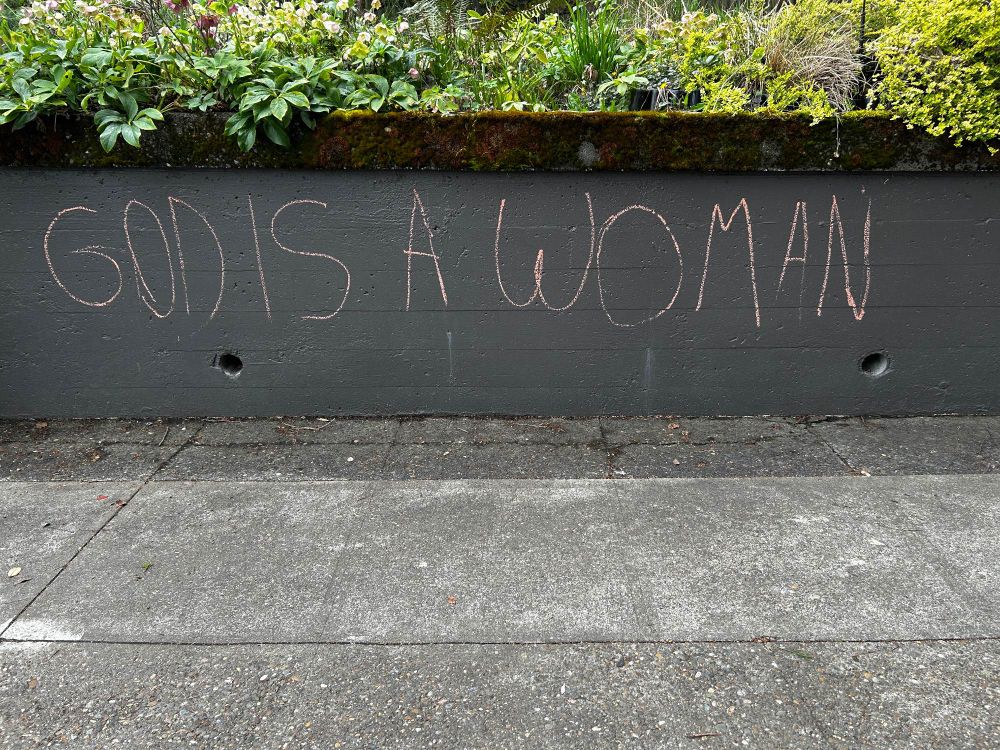 GOD IS A WOMAN